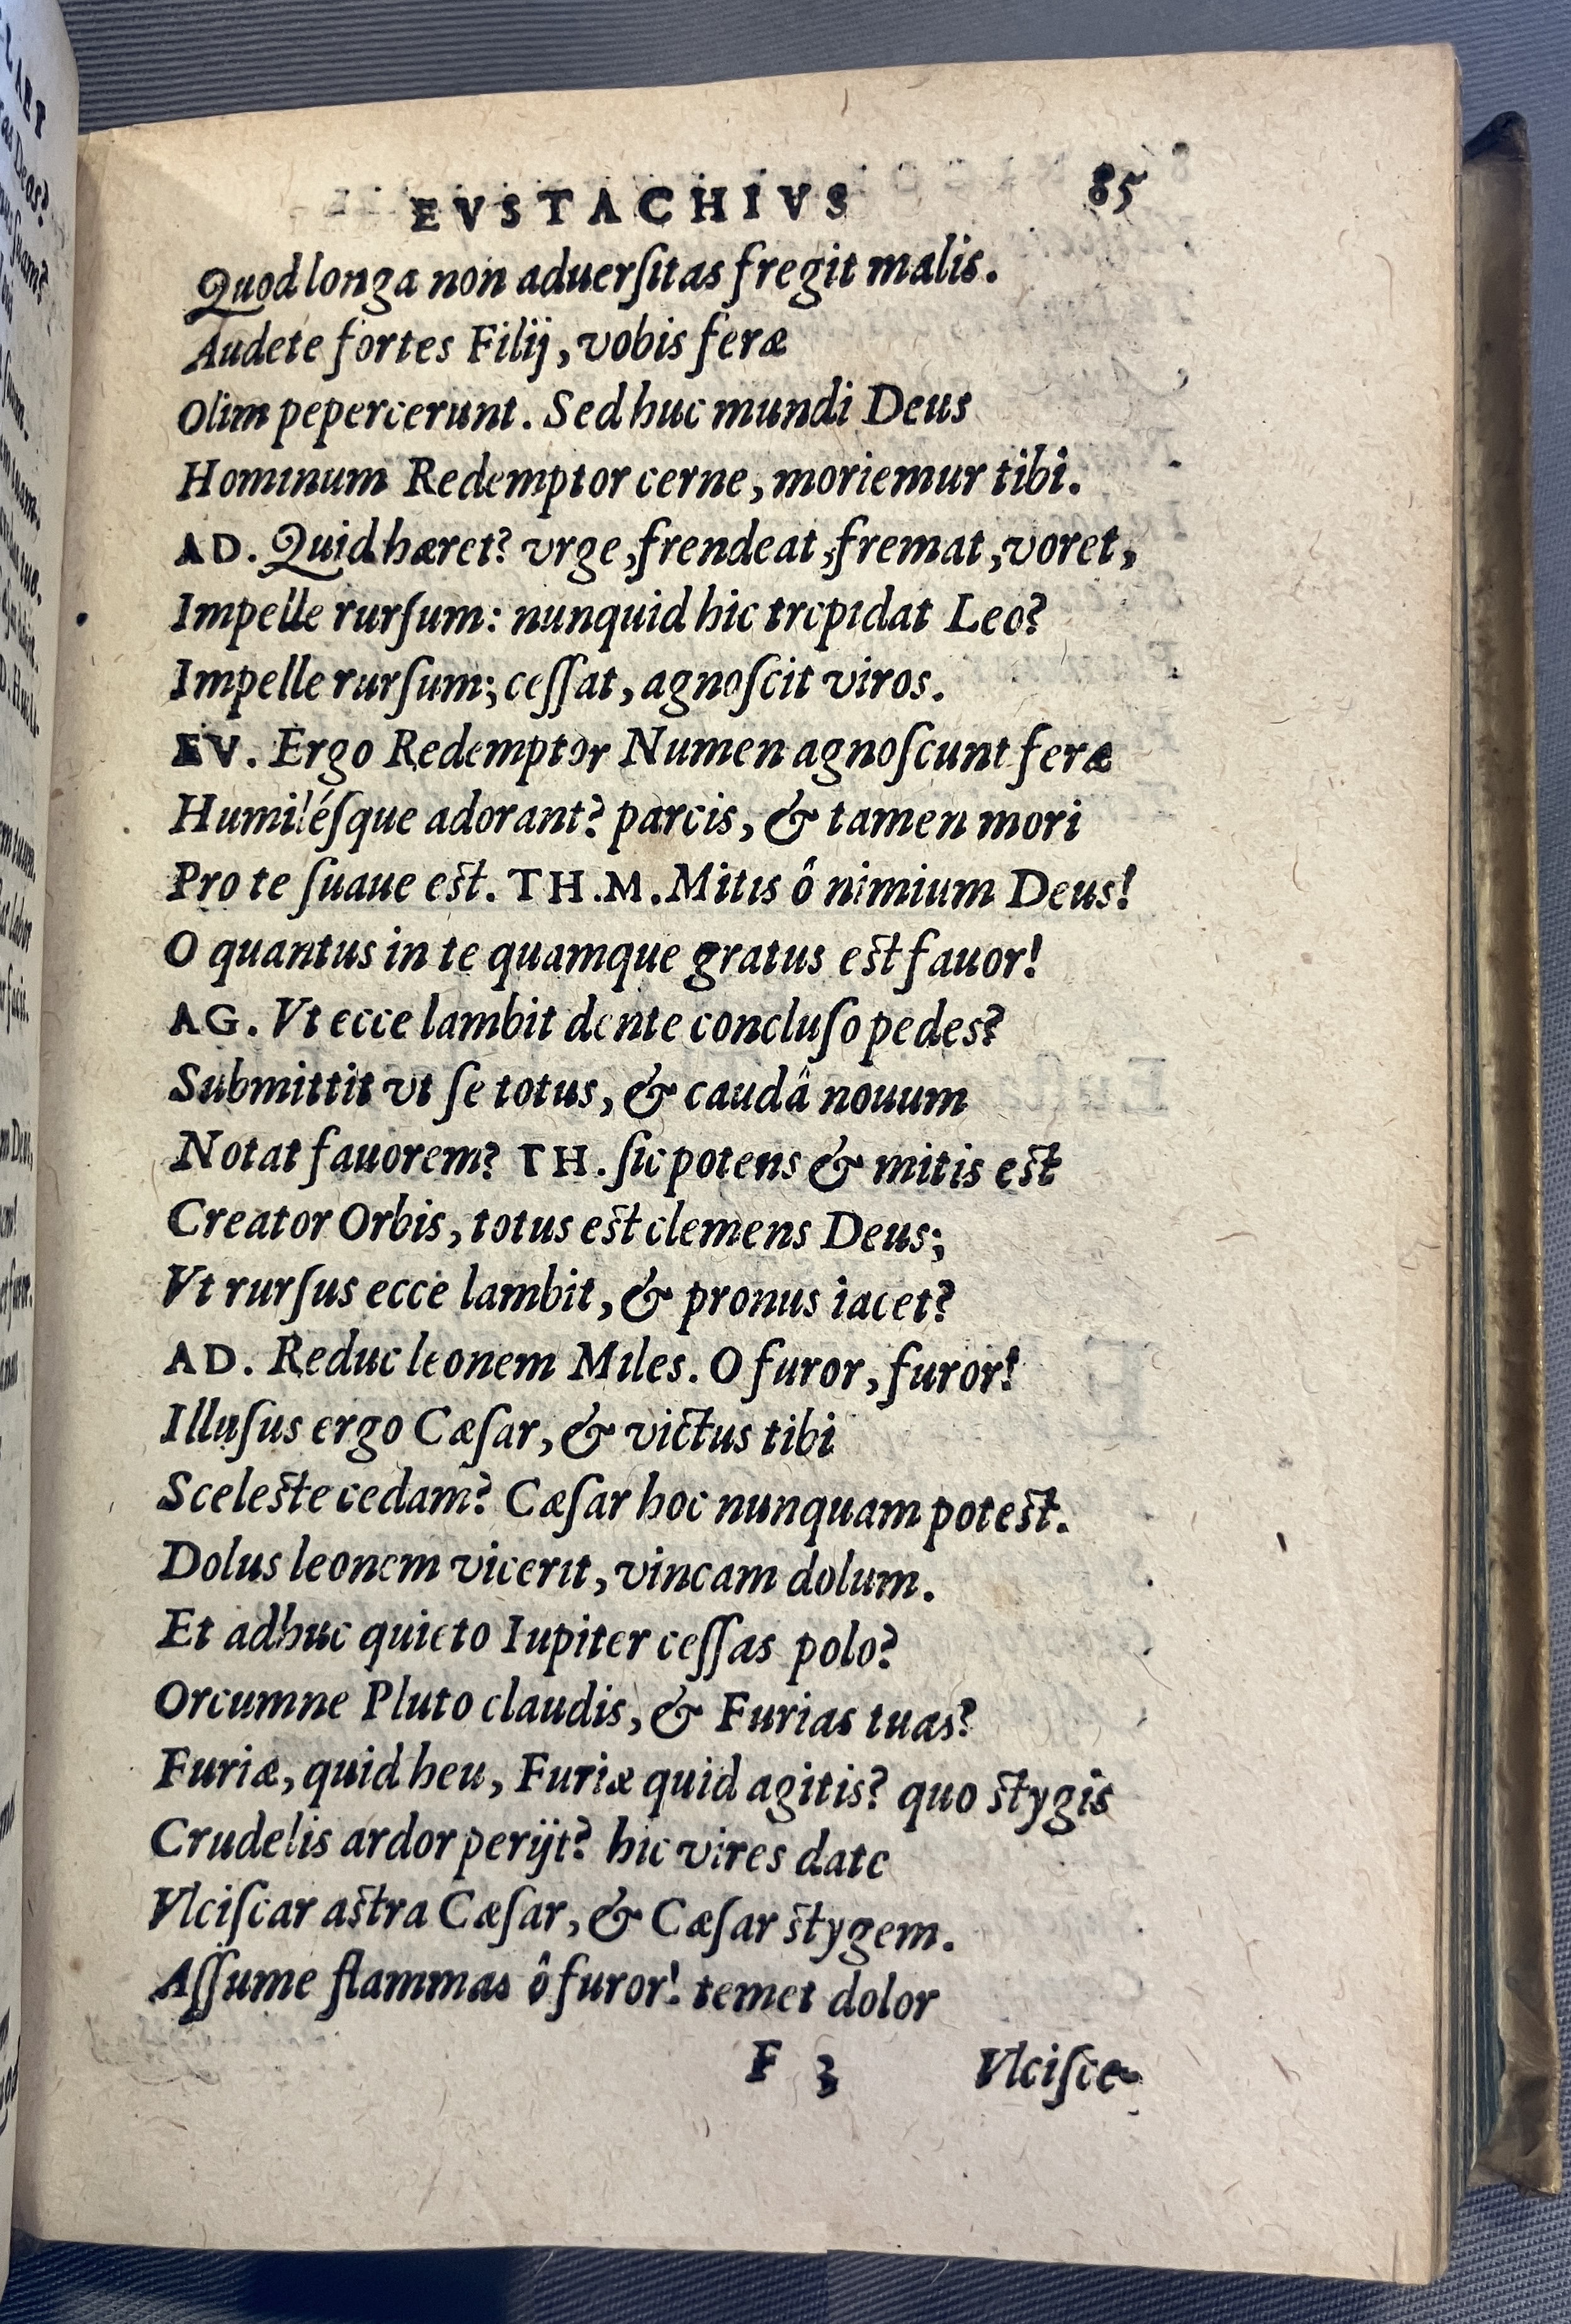 EVSTACHIVS 85
Quod longa non aduerſitas fregit malis.
Audete fortes Filij, vobis feræ
Olim pepercerunt. Sed huc mundi Deus
Hominum Redemptor cerne, moriemur tibi.
AD. Quid hæret? vrge, frendeat, fremat, voret,
Impelle rurſum: nunquid hic trepidat Leo?
Impelle rurſum; ceſſat, agnoſcit viros.
EV. Ergo Redemptor Numen agnoſcunt feræ
Humiléſque adorant? parcis, & tamen mori
Pro te ſuaue est. TH.M. Mitis ô nimium Deus!
O quantus in te quamque gratus est fauor!
AG. Vt ecce lambit dente concluſo pedes?
Submittit vt ſe totus, & caudâ nouum
Notat fauorem? TH. ſic potens & mitis est
Creator Orbis, totus est clemens Deus;
Vt rurſus ecce lambit, & pronus iacet?
AD. Reduc leonem Miles. O furor, furor!
Illuſus ergo Cæſar, & victus tibi
Sceleste cedam? Cæſar hoc nunquam potest.
Dolus leonem vicerit, vincam dolum.
Et adhuc quieto Iupiter ceſſas polo?
Orcumne Pluto claudis, & Furias tuas?
Furiæ, quid heu, Furiæ quid agitis? quo stygis
Crudelis ardor perijt? hic vires date
Vlciſcar astra Cæſar, & Cæſar stygem.
Aſſume flammas ô furor! temet dolor
F 3 Vlciſce-